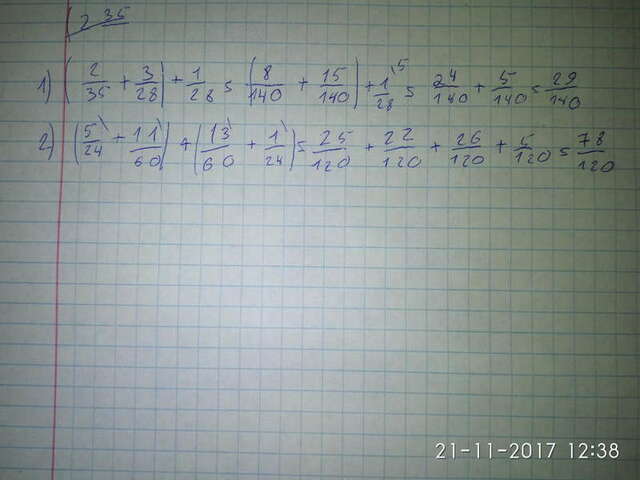 2 35
1) (2/35 + 3/28) + 1/28 = (8/140 + 15/140) + 1/28 \5 = 24/140 + 5/140 = 29/140
2) (5/24 + 11/60) + (13/60 + 1/24) = 25/120 + 22/120 + 26/120 + 5/120 = 78/120
21-11-2017 12:38